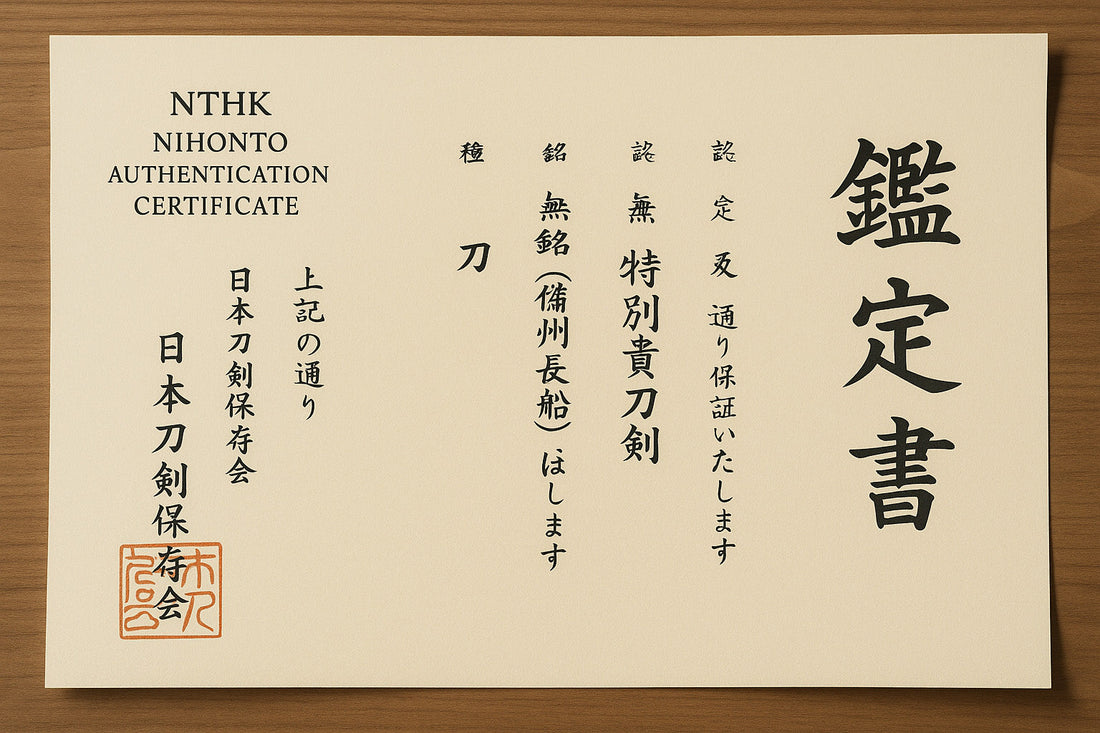 鑑定書
定 通り保証いたします
無 特別貴刀剣
銘 無銘(備州長船)ほします
刀
NTHK
NIHONTO
AUTHENTICATION
CERTIFICATE
上記の通り
日本刀剣保存会
日本刀剣保存会